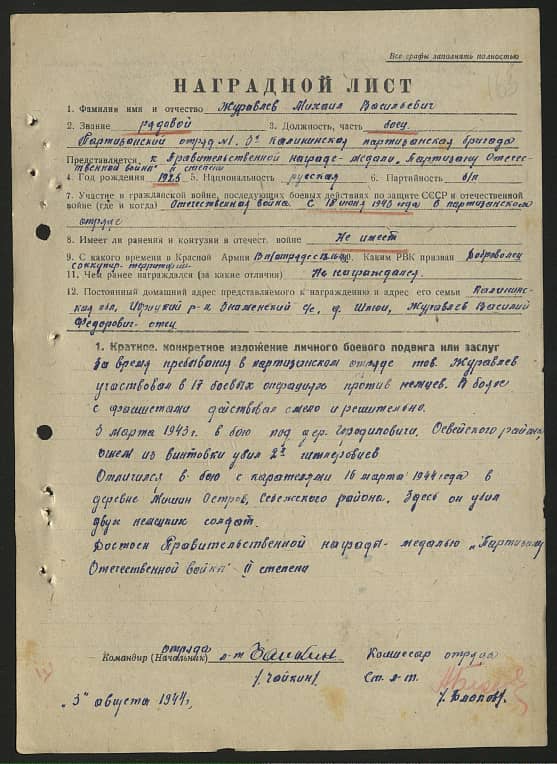 Все графы заполнять полностью
НАГРАДНОЙ ЛИСТ
1. Фамилия имя и отчество Журавлев Михаил Васильевич
2. Звание рядовой 3. Должность, часть боец
Партизанский отряд №1, 3ª Калининская партизанская бригада
Представляется к Правительственной награде - медали "Партизану Отечес-
твенной войны" II степени
4. Год рождения 1925 5. Национальность русская 6. Партийность б/п
7. Участие в гражданской войне, последующих боевых действиях по защите СССР и отечественной
войне (где и когда) Отечественная война. С 18 1943 года в партизанском
отряде
8. Имеет ли ранения и контузии в отечест. войне Не имеет
9. С какого времени в Красной Армии В п/отряде с 10. Каким РВК призван Доброволец
с оккупир. территории
11. Чем ранее награждался (за какие отличия) Не награждался.
12. Постоянный домашний адрес представляемого к награждению и адрес его семьи Калининс-
кая обл, Идрицкий р-н, Знаменский с/с, д. Журавлев Василий
Федорович - отец
1. Краткое, конкретное изложение личного боевого подвига или заслуг
За время пребывания в партизанском отряде тов. Журавлев
участвовал в 17 боевых операциях против немцев. В боях
с фашистами действовал смело и решительно.
5 марта 1943 г. в бою под дер. Освейского района,
огнем из винтовки убил 2ˣ гитлеровцев
Отличился в бою с карателями 16 марта 1944 года в
деревне Мишин Остров, Себежского района. Здесь он убил
двух немецких солдат.
Достоин Правительственной награды - медалью "Партизану
Отечественной войны" II степени
отряда
Командир (Начальник) л-т Комиссар отряда
/Чайкин/ Ст. л-т.
"3" августа 1944 г.